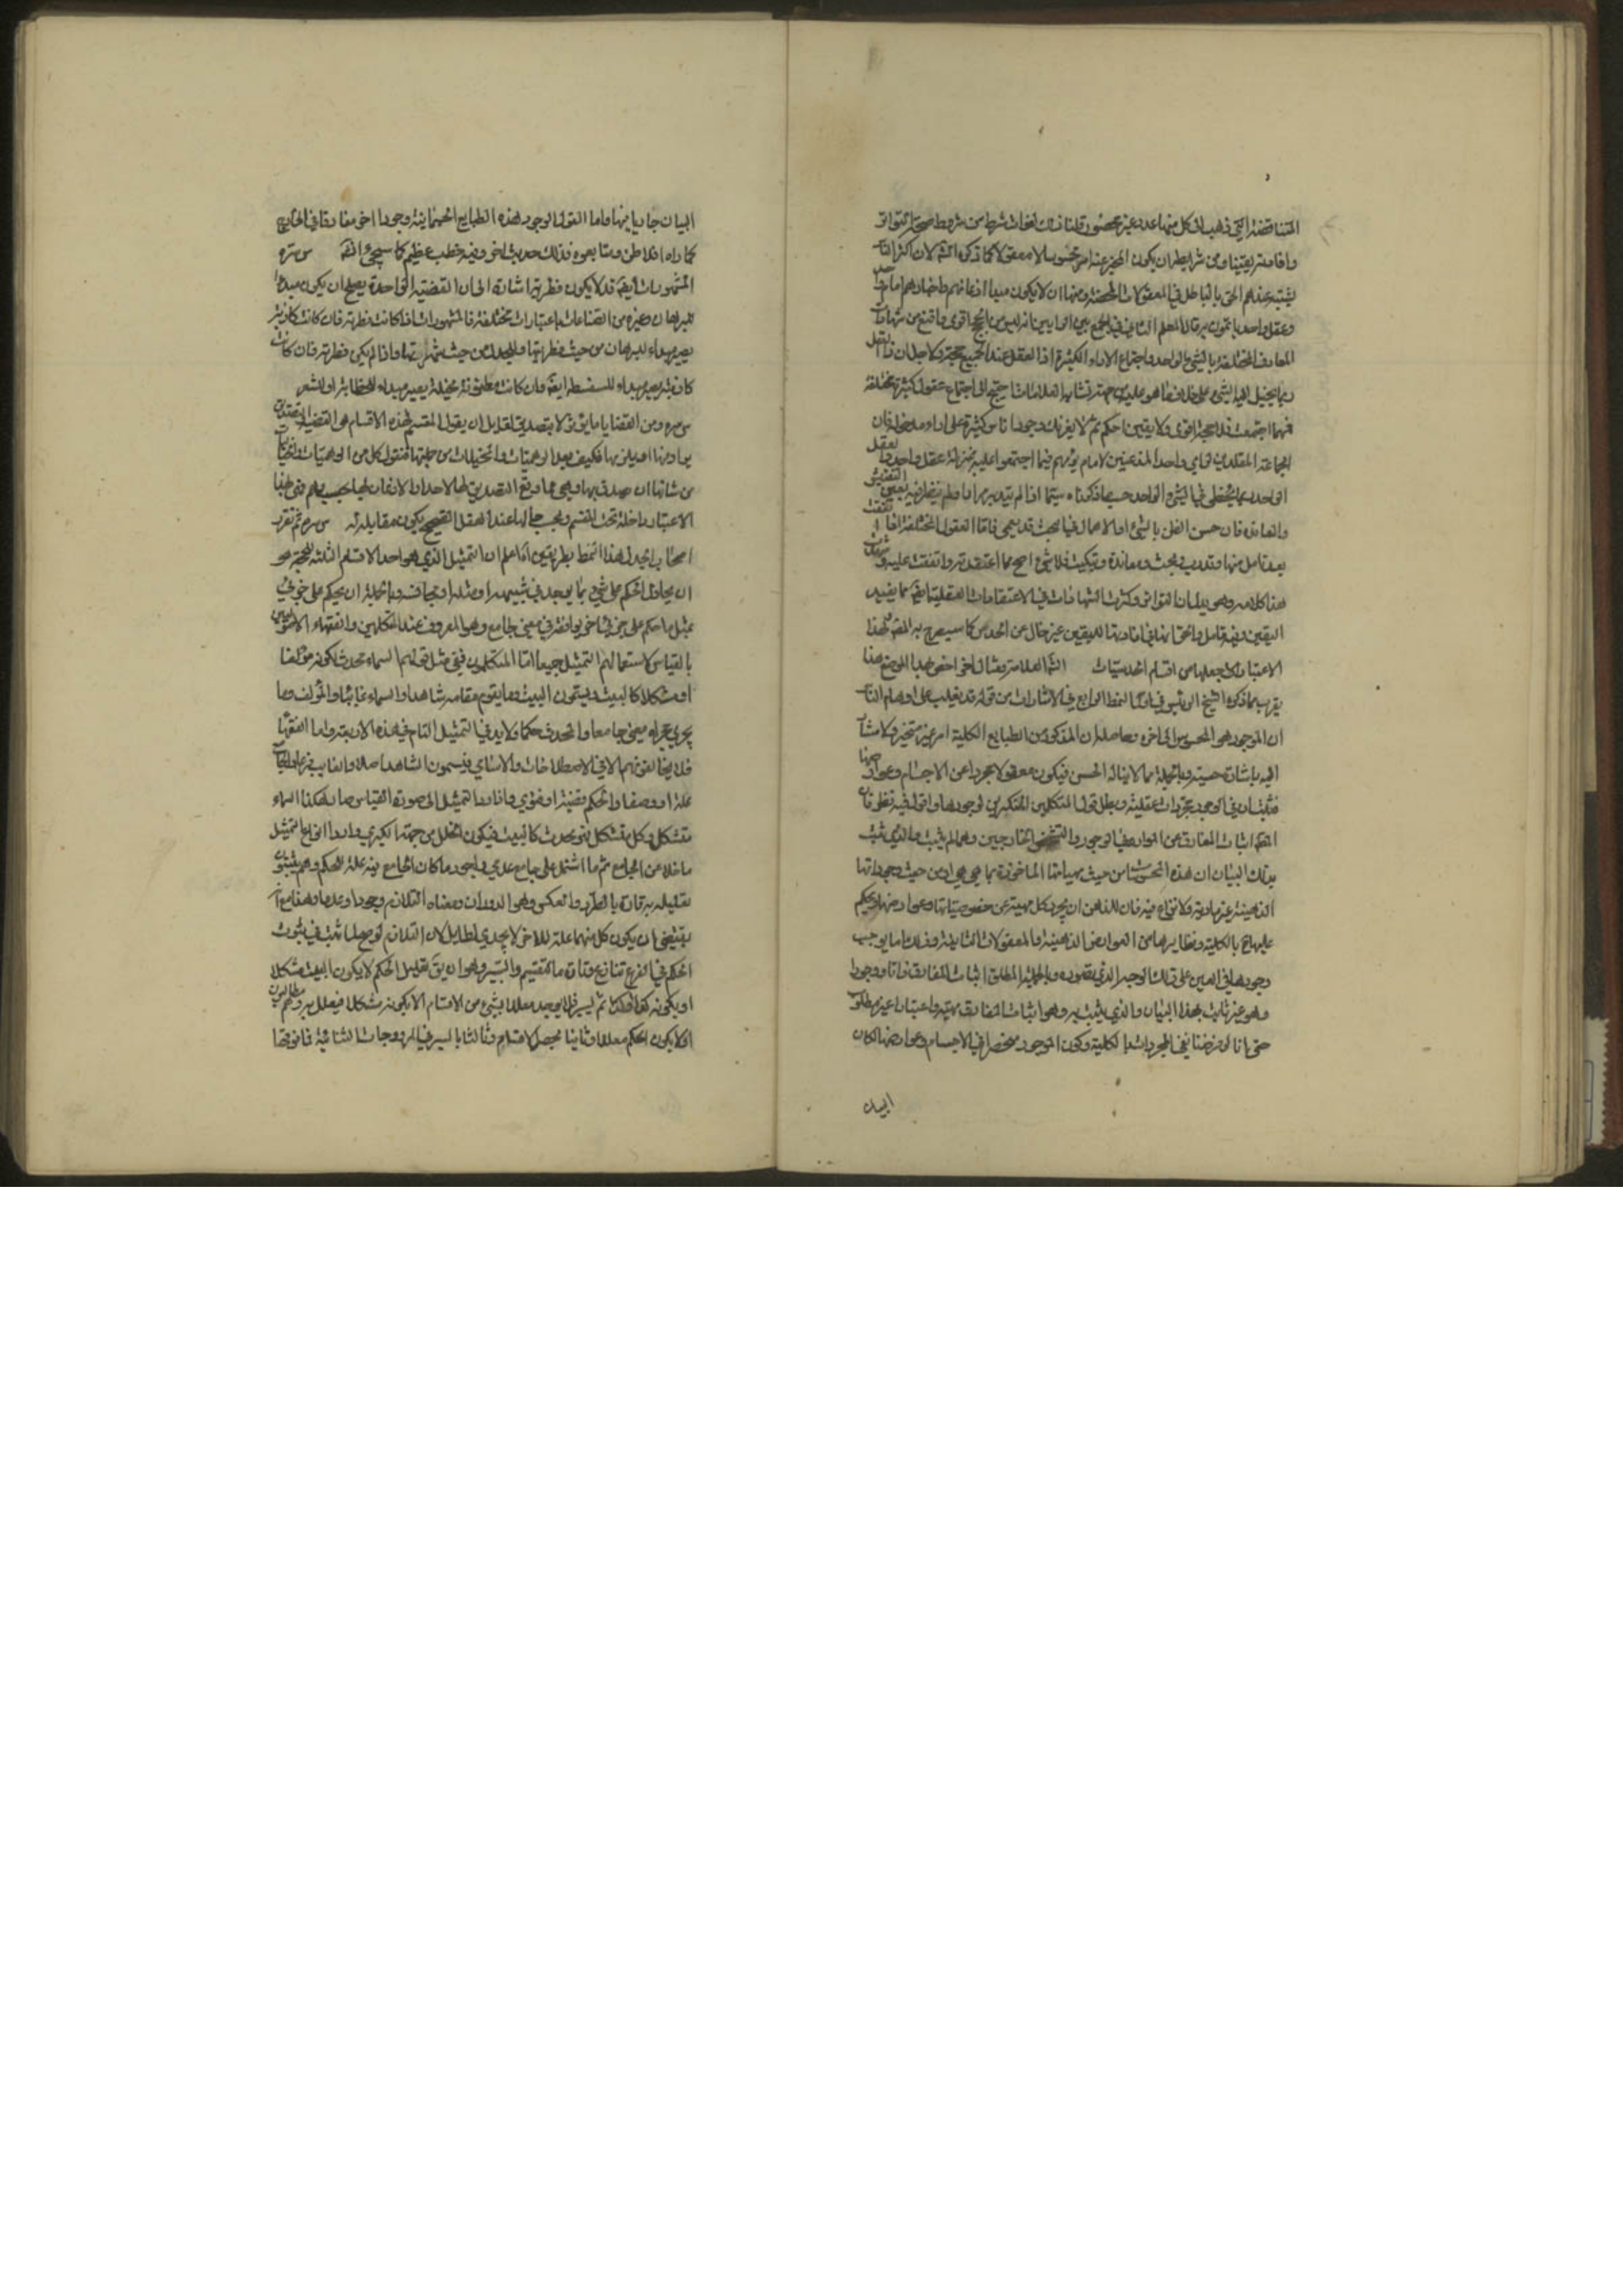 المتناقضة التي ذهب الى كل منها عدد غير محصور قلنا ذلك لفوات شرط من شروط صحة التواتر
وافادته يقينا ومن شرايطه ان يكون المخبر عنه امر محسوسا لا معقولا كما ذكره الشم لان اكثر الناس
يشتبه عندهم الحق بالباطل في المعقولات المحضة ومنها ان لا يكون مبدا اذعانهم واخبارهم امام
وعقل واحد ياتمون به قال المعلم الثاني في الجمع بين الرايين انه ليس من الحجج اقوى واقنع من شهادات
المعارف المختلفة بالشيء الواحد واجتماع الاراء الكثيرة اذ العقل عند الجميع حجة ولاجل ان ذا العقل
ربما يخيل اليه الشيء على خلاف ما هو عليه من جهة تشابه العلامات احتيج الى اجتماع عقول كثيرة مختلفة
فمهما اجتمعت فلا حجة اقوى ولا يقين احكم ثم لا يغرنك وجود اناس كثيرة على اراء مدخولة فان
الجماعة المقلدين لراي واحد المذعنين لامام يؤمهم فيما اجتمعوا عليه بمنزلة عقل واحد والعقل
الواحد ربما يخطي في الشيء الواحد حسبما ذكرناه سيما اذا لم يتدبر مرارا ولم ينظر فيه بعين التفتيش
والمعاندة فان حسن الظن بالشيء او الاهمال في البحث قد يعمي فاما العقول المختلفة اذا اتفقت
بعد تامل منها وتدرب وبحث ومعاندة وتبكيت فلا شيء اصح مما اعتقدته واتفقت عليه وشهدت
هذا كلامه وهو يدل ان التواتر وكثرة الشهادات في الاعتقادات العقلية ايضا مما يفيد
اليقين وفيه تامل والحق انها في افادتها لليقين غير خال عن الحدس كما سيصرح به المصر لهذا
الاعتبار جعلها من اقسام الحدسيات
يقرب مما ذكره الشيخ الرئيس في اول النمط الرابع في الاشارات من قوله قد يغلب على اوهام الناس
ان الموجود هو المحسوس الى اخره وحاصله ان المذكور من الطبايع الكلية امر غير متحيز ولا مشار
اليه باشارة حسية وبالجملة مما لا يناله الحس فيكون معقولا مجردا عن الاجسام وعوارضها
فثبت ان في الوجود مجردات عقلية وبطل قول المتكلمين المنكرين لوجودها واقول فيه نظر فان
اثبات المفارق عن المواد في الوجود والتشخص الخارجيين وهما لم يثبت والذي ثبت
بذلك البيان ان هذه المحسوسات من حيث مهياتها الماخوذة بما هي هي او من حيث وجوداتها
الذهنية غير مادية ولا نزاع فيه فان للذهن ان يجرد كل مهية عن خصوصياتها وعوارضها ويحكم
عليها بالكلية ونظايرها من العوارض الذهنية والمعقولات الثانية وذلك مما يوجب
وجودها في العين على ذلك الوجه الذي تصوره وبالجملة المطلوب اثبات المفارق ذاتا ووجودا
وهو غير ثابت بهذا البيان والذي يثبت به وهو اثبات المفارق مهية واعتبارا غير مطلوب
حتى انا لو فرضنا نفي المجردات بالكلية وكون الموجود منحصرا في الاجسام وعوارضها لكان
البيان
البيان جاريا فيها واما القول لوجود لهذه الطبايع الجسمانية وجودا اخر مفارقا في الخارج
كما راه افلاطن ومتابعوه فذلك حديث اخر وفيه خطب عظيم كما سيجيء انشم س ره
المشهورات ايضا قد لا يكون فطرية اشارة الى ان القضية الواحدة يصلح ان يكون مبدءا
للبرهان وغيره من الصناعات باعتبارات مختلفة فالمشهورات اذا كانت فطرية فان كانت كاذبة
يصير مبداء للبرهان من حيث فطريتها وللجدل من حيث شهرتها واذا لم يكن فطرية فان كانت
كاذبة يصير مبداء للسفسطه ايضا وان كانت مظنونة مخيلة يصير مبداء للخطابة او للشعر
س ره ومن القضايا ما يؤثر لا بتصديق لقايل ان يقول المقسم لهذه الاقسام هو القضية التصديق
من شانها ان يصدق بها وهي مما وقع التصديق لها لاحد
الاعتبار داخلة تحت المقسم وبحسب حالها عند العقل الصحيح يكون مقابلة له س ره ثم تقرر
اصحاب الجدل لهذا النمط بطريقين اعلم ان التمثيل الذي هو احد الاقسام الثلثة للحجة هو
ان يحاول الحكم على شيء بما يوجد في شبيهه او مثله او مجانسه وبالجملة ان يحكم على جزئي
بمثل ما حكم على جزئي اخر يوافقه في معنى جامع وهو المعروف عند المتكلمين والفقهاء الاصوليين
بالقياس لاستعمالهم التمثيل جميعا اما المتكلمون ففي مثل قولهم السماء محدث لكونه مؤلفا
او متشكلا كالبيت ويسمون البيت وما يقوم مقامه شاهدا والسماء غايبا والمؤلف وما
يجري مجراه معنى جامعا والمحدث حكما ولا بد في التمثيل التام من هذه الاربعة واما الفقها
فلا يخالفونهم الا في الاصطلاحات والاسامي فيسمون الشاهد اصلا والغايب فرعا والجامع
علة او وصفا والحكم قضية او فتوى واذا رد التمثيل الى صورة القياس صار هكذا السماء
متشكل وكل متشكل فهو محدث كالبيت فيكون الخلل من جهة الكبرى واردا انواع التمثيل
ما خلا عن الجامع ثم ما اشتمل على جامع عدمي واجود ما كان الجامع فيه علة للحكم وهم يثبتون
تعليله به تارة بالطرد والعكس وهو الدوران ومعناه التلازم وجودا وعدما وهذا مع انه
يقتضي ان يكون كل منهما علة للاخر لا يجدي لطايل لان التلازم لو صح لما ثبت في ثبوت
الحكم في الفرع تنازع وتارة بالتقسيم والسبر وهو ان يق تعليل الحكم لا يكون البيت متشكلا
او بكونه كذا وكذا ثم يسبر فلا يوجد معللا بشيء من الاقسام الا بكونه متشكلا فيعلل به وهم مطالبون
اولا بكون الحكم معللا وثانيا بحصر الاقسام وثالثا بالسبر في المزدوجات الثنائية فما فوقها